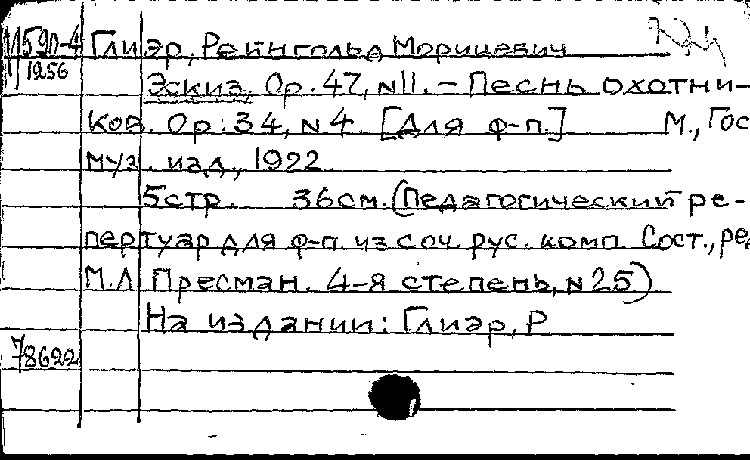 М59п-4 Глиэр, Рейнгольд Морицевич
1256
Эскиз, Ор. 47, N11. – Песнь охотни-
ков. Ор. 34, N4. [Для ф-п.] М., Гос
муз. изд., 1922
5 стр. 36 см. (Педагогический ре-
пертуар для ф-п. из соч. рус. комп. Сост., ред
М.Л Пресман. 4-я степень, N 25)
На издании: Глиэр, Р
78622